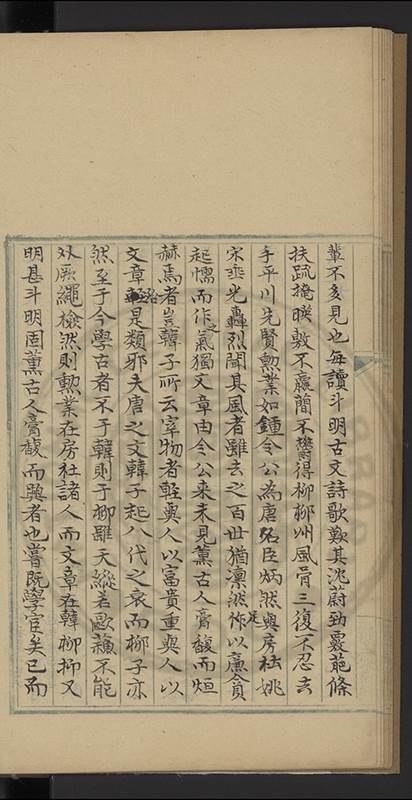 輩不多見也每讀斗明古文詩歌歎其沈蔚勁嚴葩條
扶疏掩暎數不羸蕳不鬱得柳柳州風骨三復不忍去
手平川先賢勲業如鍾令公為唐名臣炳然與房杜姚
宋垂光轟烈聞其風者雖去之百世猶凛然足作以廉貪
起懦而作之氣獨文章由令公来未見薰古人膏馥而烜
赫焉者豈韓子所云宰物者輕與人以富貴重與人以
文章類是類邪夫唐之文韓子起八代之衰而柳子亦
然至于今學古者不于韓則于柳雖天縱若歐蘓不能
外厥繩檢然則勲業在房杜諸人而文章在韓柳抑又
明甚斗明固薰古人膏馥而興者也嘗既學官矣已而